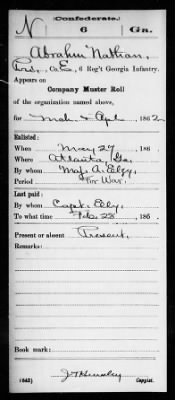 (Confederate.)
N 6 Ga.
Abrahm Nathan,
Pvt., Co. E, 6 Reg't Georgia Infantry.
Appears on
Company Muster Roll
of the organization named above,
for Mch & Apl, 1862.
Enlisted:
When May 27, 186
Where Atlanta, Ga.
By whom Maj. A.
Period For War.
Last paid:
By whom Capt.
To what time Feb. 28, 186
Present or absent Present.
Remarks:
Book mark:
(642)
Copyist.